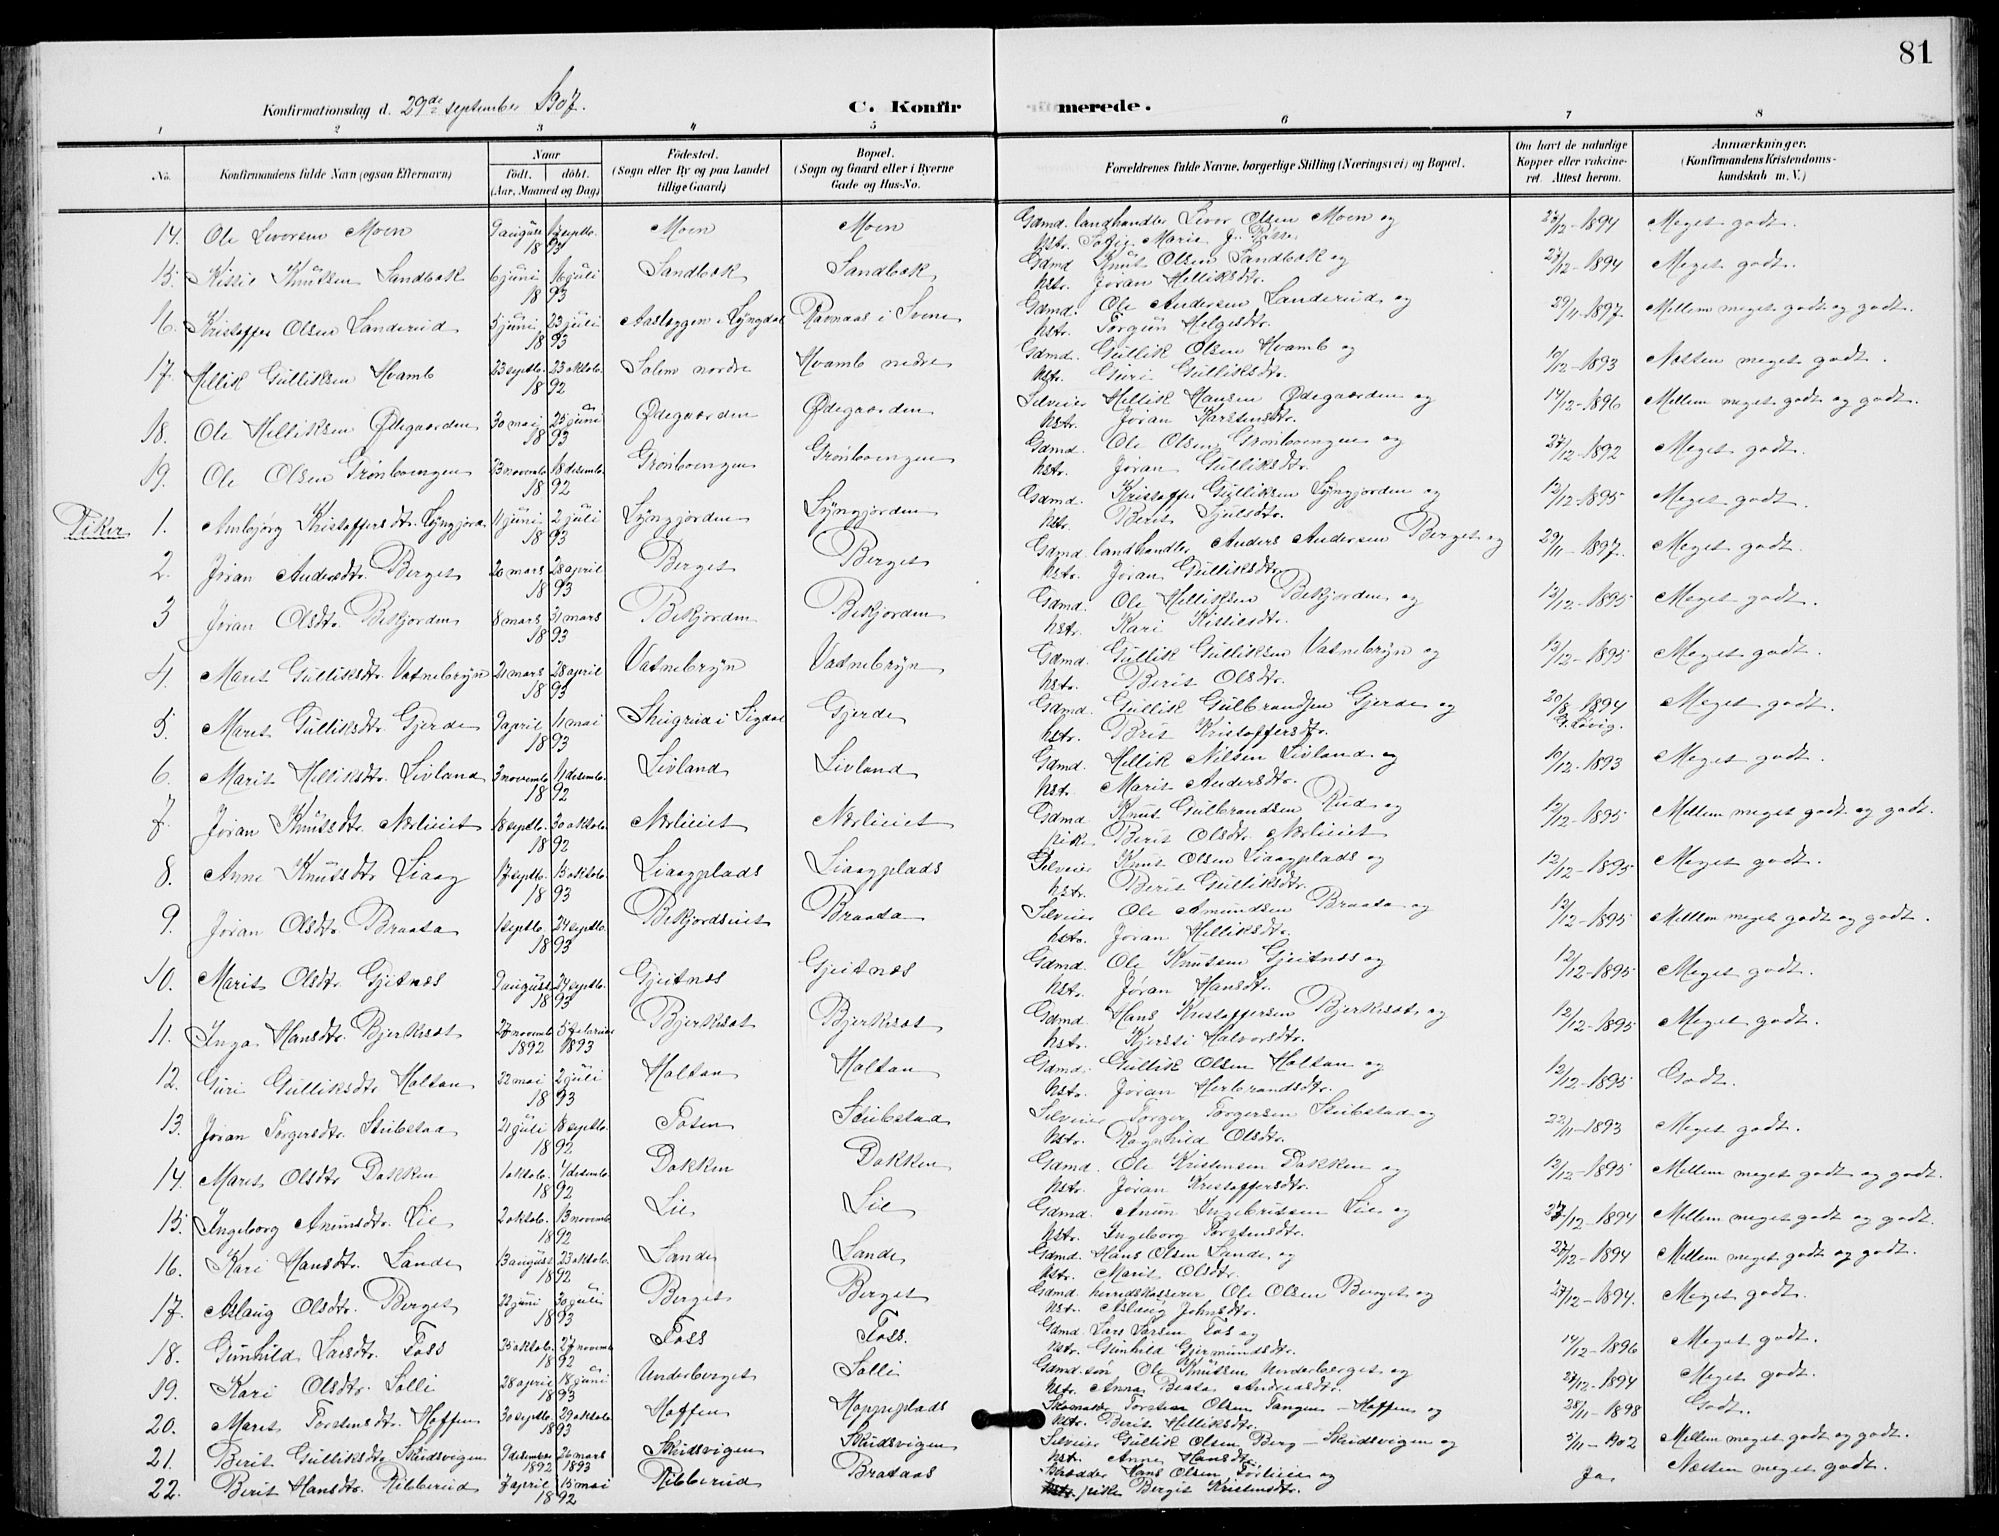 81
Konfirmationsdag d. 29de september 1907.
C. Konfirmerede.
1 2 3 4 5 6 7 8
No. Konfirmandens fulde Navn (ogsaa Efternavn) Naar Født. døbt. (Aar, Maaned og Dag) Fødested. (Sogn eller By og paa Landet tillige Gaard) Bopæl. (Sogn og Gaard eller i Byerne Gade og Hus-No. Forældrenes fulde Navne, borgerlige Stilling (Næringsvei) og Bopæl. Om havt de naturlige Kopper eller vaccineret. Attest herom. Anmærkninger. (Konfirmandens Kristendomskundskab m. V.)
14. Ole Liversen Moen 9 august 17 septb. 1893 Moen Moen Gdmd. landhandler Liver Olsen Moen og hstr. Sofie Marie J. 27/12-1894 Meget godt.
15. Kittil Knutsen Sandbæk 6 juni 16 juli 1893 Sandbæk Sandbæk Gdmd. Knut Olsen Sandbæk og hstr. Jøran Helliksdtr. 27/12-1894 Meget godt.
16. Kristoffer Olsen Landerud 5 juni 23 juli 1893 Aasleggen i Lyngdal Ravnaas i Svene Gdmd. Ole Andersen Landerud og hstr. Torgun Helgesdtr. 29/11-1897. Mellem meget godt og godt.
17. Hellik Gulliksen Hvamb 23 septb. 23 oktob. 1892 Solem nordre Hvamb nedre Gdmd. Gullik Olsen Hvamb og hstr. Guri Gulliksdtr. 10/12-1893 Næsten meget godt.
18. Ole Helliksen Ødegaarden 30 mai 25 juni 1893 Ødegaarden Ødegaarden Selveier Hellik Hansen Ødegaarden og hstr. Jøran Karstensdtr. 14/12-1896 Mellem meget godt og godt.
19. Ole Olsen Grønboengen 23 novemb. 18 desemb. 1892 Grønboengen Grønboengen Gdmd. Ole Olsen Grønboengen og hstr. Jøran Gulliksdtr. 27/12-1892 Meget godt.
Piker 1. Ambjørg Kristoffersdtr. Lyngjord 11 juni 2 juli 1893 Lyngjorden Lyngjorden Gdmd. Kristoffer Gulliksen Lyngjorden og hstr. Berit Juulsdtr. 12/12-1895 Meget godt.
2. Jøran Andersdtr. Berget 20 mars 28 april 1893 Berget Berget Gdmd. landhandler Anders Andersen Berget og hstr. Jøran Gulliksdtr. 29/11-1897. Meget godt.
3 Jøran Olsdtr. Bekjorden 8 mars 31 mars 1893 Bekjorden Bekjorden Gdmd. Ole Helliksen Bekjorden og hstr. Kari Kittilsdtr. 12/12-1895 Meget godt.
4. Marit Gulliksdtr. Vatnebryn 21 mars 28 april 1893 Vatnebryn Vatnebryn Gdmd. Gullik Gulliksen Vatnebryn og hstr. Berit Olsdtr. 12/12-1895 Meget godt.
5 Marit Gulliksdtr. Gjerde 9 april 11 mai 1893 Skugrud i Sigdal Gjerde Gdmd. Gullik Gulbrandsen Gjerde og hstr. Berit Kristoffersdtr. 20/8 1894 Meget godt.
6. Marit Helliksdtr. Livland 3 novemb. 11 desemb. 1892 Livland Livland Gdmd. Hellik Nilsen Livland og hst. Marit Andersdtr. 10/12-1893 Meget godt.
7. Jøran Knutsdtr. Nørlieiet 18 septb. 30 oktob. 1892 Nørlieiet Nørlieiet Gdmd Knut Gulbrandsen Rud og pike Berit Olsdtr. Nørlieiet 12/12-1895 Mellem meget godt og godt.
8. Anne Knutsdtr. Liaag 17 septb. 15 oktob. 1893 Liaagplads Liaagplads Selveier Knut Olsen Liaagplads og hstr. Berit Gulliksdtr. 12/12-1895 Meget godt.
9. Jøran Olsdtr. Braata 1 septb. 24 septb. 1893 Bekjordseiet Braata Selveier Ole Amundsen Braata og hstr. Jøran Helliksdtr. 12/12-1895 Mellem meget godt og godt.
10. Marit Olsdtr. Gjeitnes 9 august 24 septb. 1893 Gjeitnes Gjeitnes Gdmd. Ole Knutsen Gjeitnes og hstr. Jøran Hansdtr. 12/12-1895 Meget godt.
11. Inga Hansdtr. Bjerkesæt 27 novemb. 1892 5 februar 1893 Bjerkesæt Bjerkesæt Gdmd. Hans Kristoffersen Bjerkesæt og hstr. Kjersti Halvorsdtr. 12/12-1895 Meget godt.
12. Guri Gulliksdtr. Holtan 22 mai 2 juli 1893 Holtan Holtan Gdmd. Gullik Olsen Holtan og hstr. Jøran Herbrandsdtr. 12/12-1895 Godt.
13. Jøran Torgersdtr. Stubstad 21 juli 18 septb. 1892 Fosen Stubstad Selveier Torger Torgersen Stubstad og hstr. Ragnhild Olsdtr. 22/11-1893 Meget godt.
14. Marit Olsdtr. Dokken 1 oktob. 4 desemb. 1892 Dokken Dokken Gdmd. Ole Kristensen Dokken og hstr. Jøran Kristoffersdtr. 12/12-1895 Mellem meget godt og godt.
15. Ingeborg Anunsdtr. Lie 2 oktob. 13 novemb. 1892 Lie Lie Gdmd. Anun Ingebretsen Lie og hstr. Ingeborg Torstensdtr. 27/12-1894 Mellem meget godt og godt.
16. Kari Hansdtr. Lande 13 august 23 oktob. 1892 Lande Lande Gdmd. Hans Olsen Lande og hstr. Marit Olsdtr. 27/12-1894 Mellem meget godt og godt.
17. Aslaug Olsdtr. Berget 22 juni 30 juli 1893 Berget Berget Gdmd. herredskasserer Ole Olsen Berget og hst. Aslaug Johnsdtr. 27/12-1894. Meget godt.
18. Gunhild Larsdtr. Foss 25 oktob. 27 novemb. 1892 Foss Foss. Gdmd. Lars Larsen Fos og hstr. Gunhild Gjermundsdtr. 14/12-1896 Meget godt.
19. Kari Olsdtr. Solli 28 april 18 juni 1893 Underberget Solli Gdmd. søn Ole Knutsen Underberget og hst. Anna Beata Andreasdtr. 27/12-1894 Meget godt.
20. Marit Torstensdtr. Hoffen 30 septb. 29 oktob. 1893 Hoffen Hoppeplads Skomaker Torsten Olsen Tangen - Hoffen og hstr. Berit Helliksdtr. 28/11-1898 Godt.
21. Berit Gulliksdtr. Skudsvigen 9 desember 1892 26 mars 1893 Skudsvigen Skudsvigen Selveier Gullik Olsen Berg - Skudsvigen og hst. Anne Hansdtr. 3/11-1902 Mellem meget godt og godt.
22. Berit Hansdtr. Ribberud 7 april 15 mai 1892 Ribberud Brataas Hans Olsen og pike Bergit Kristensdtr. Ja. Næsten meget godt.